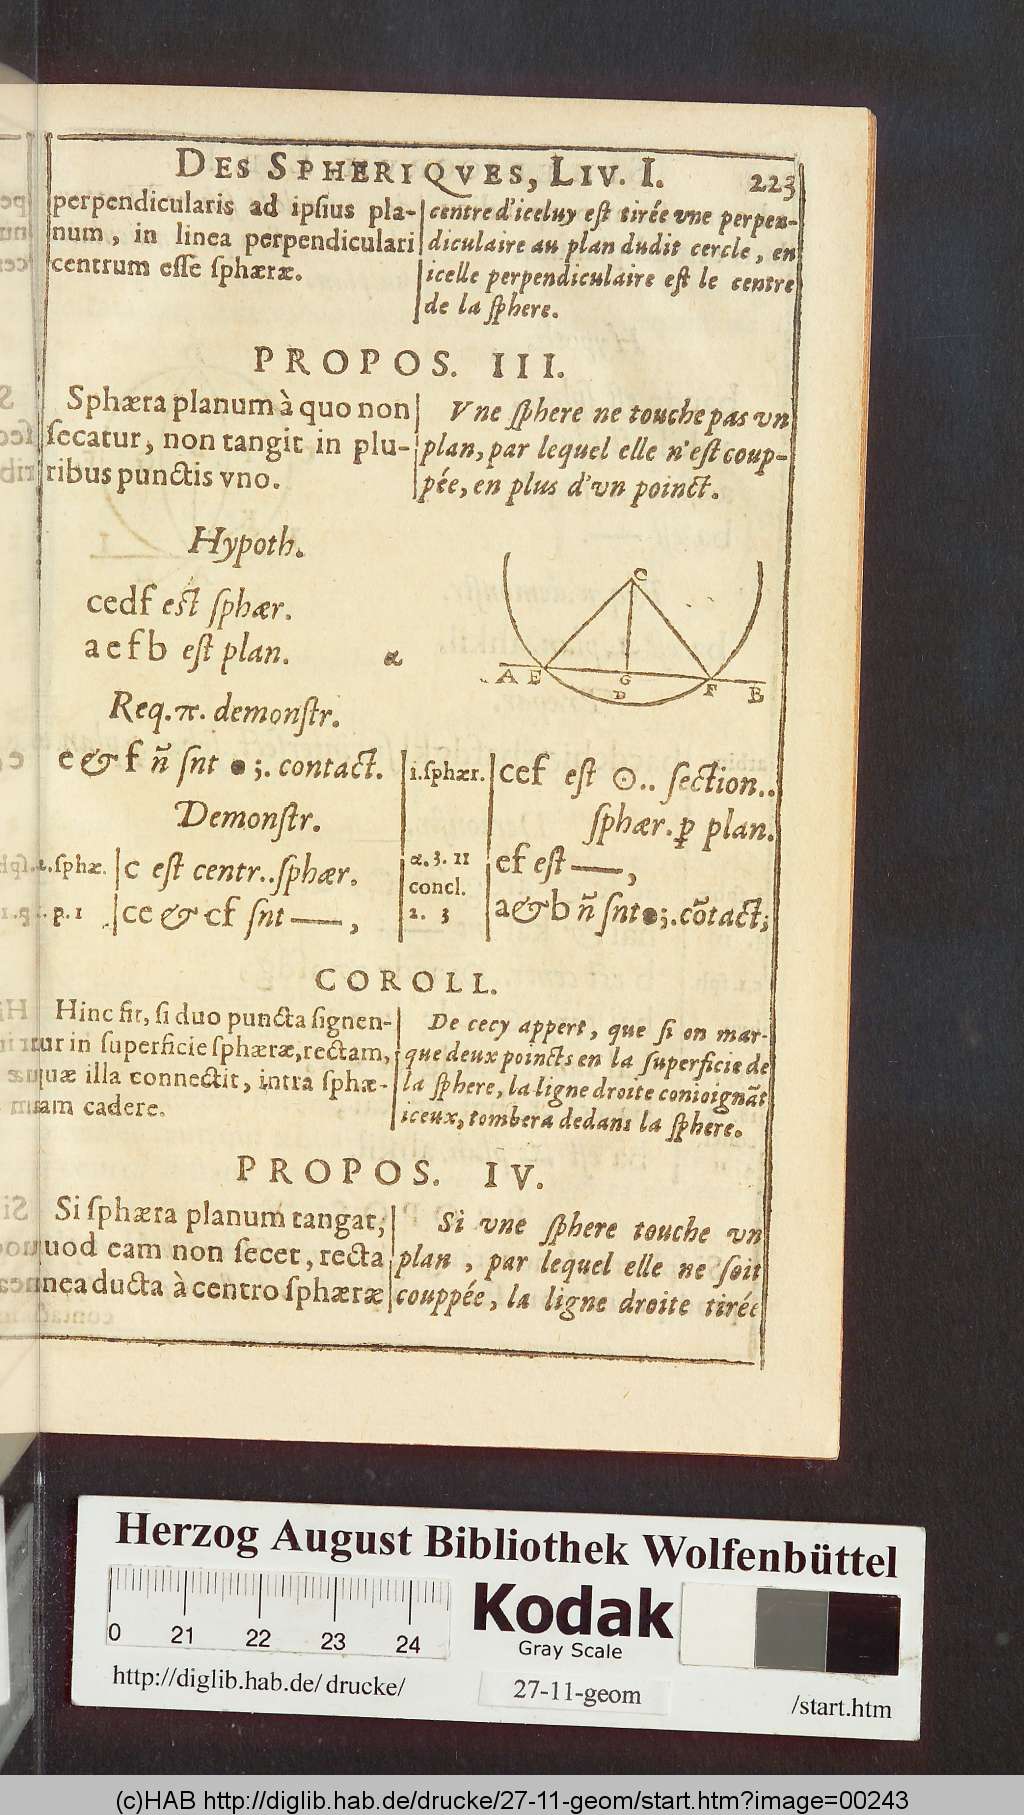 DES SPHERIQVES, LIV. I. 223
perpendicularis ad ipsius pla-
num, in linea perpendiculari
centrum esse sphæræ.
centre d'iceluy est tirée vne perpen-
diculaire au plan dudit cercle, en
icelle perpendiculaire est le centre
de la sphere.
PROPOS. III.
Sphæra planum à quo non
secatur, non tangit in plu-
ribus punctis vno.
Vne sphere ne touche pas vn
plan, par lequel elle n'est coup-
pée, en plus d'vn poinct.
Hypoth.
cedf est sphær.
aefb est plan. α
C
A E G F B
D
Req. π. demonstr.
e & f ñ snt ●;. contact.
Demonstr.
1.sphæ. c est centr..sphær.
p. 1 ce & cf snt —,
1.sphær. cef est ⊙.. section..
sphær. ꝑ plan.
α. 3. 11 ef est —,
concl.
2. 3 a&b ñ snt●;. cõtact;
COROLL.
Hinc fit, si duo puncta signen-
tur in superficie sphæræ, rectam,
quæ illa connectit, intra sphæ-
ram cadere.
De cecy appert, que si on mar-
que deux poincts en la superficie de
la sphere, la ligne droite conioignãt
iceux, tombera dedans la sphere.
PROPOS. IV.
Si sphæra planum tangat,
quod eam non secet, recta
linea ducta à centro sphæræ
Si vne sphere touche vn
plan, par lequel elle ne soit
couppée, la ligne droite tirée
Herzog August Bibliothek Wolfenbüttel
0 21 22 23 24
Kodak
Gray Scale
http://diglib.hab.de/ drucke/ 27-11-geom /start.htm
(c)HAB http://diglib.hab.de/drucke/27-11-geom/start.htm?image=00243